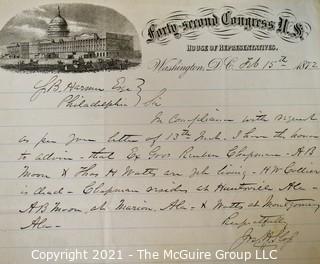 Forty-second Congress U.S.
HOUSE OF REPRESENTATIVES.
Washington, D.C. Feb 15th 1872
J.B. Harmer Esq
Philadelphia Sir
In compliance with request
as per your letter of 13th Inst. I have the honor
to advise - that Ex Govr Reuben Chapman - A B
Moon & Thos H Watts are yet living - H W Collier
is dead - Chapman resides at Huntsville Ala -
A B Moon, at Marion, Ala - & Watts at Montgomery
Ala -
Respectfully
Copyright © 2021 - The McGuire Group LLC